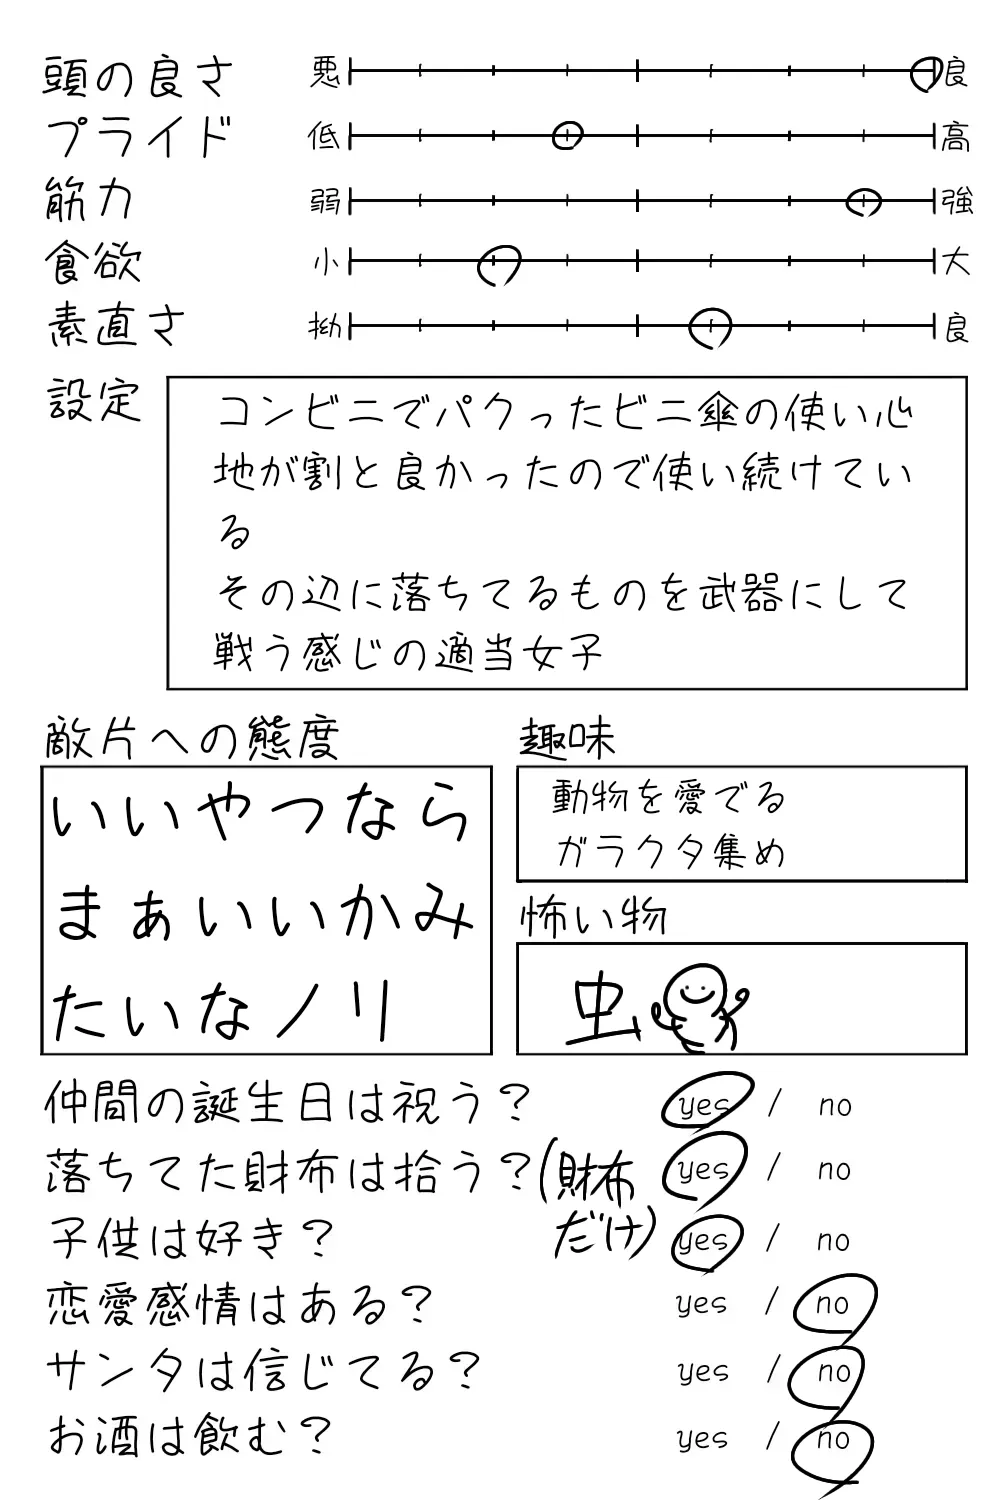 頭の良さ 悪 良
プライド 低 高
筋力 弱 強
食欲 小 大
素直さ 拗 良
設定
コンビニでパクったビニ傘の使い心
地が割と良かったので使い続けてい
る
その辺に落ちてるものを武器にして
戦う感じの適当女子
敵片への態度
いいやつなら
まぁいいかみ
たいなノリ
趣味
動物を愛でる
ガラクタ集め
怖い物
虫
仲間の誕生日は祝う? yes / no
落ちてた財布は拾う?(財布 yes / no
だけ)
子供は好き? yes / no
恋愛感情はある? yes / no
サンタは信じてる? yes / no
お酒は飲む? yes / no